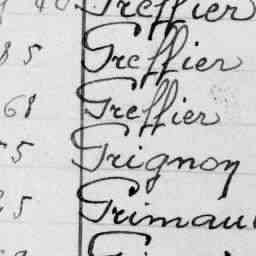 Greffier
85 Greffier
68 Greffier
5 Grignon
5 Grimau